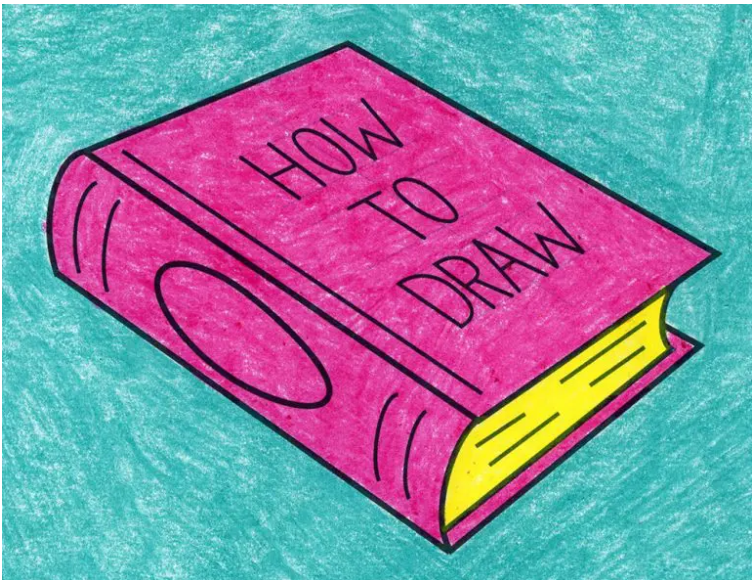 HOW
TO
DRAW